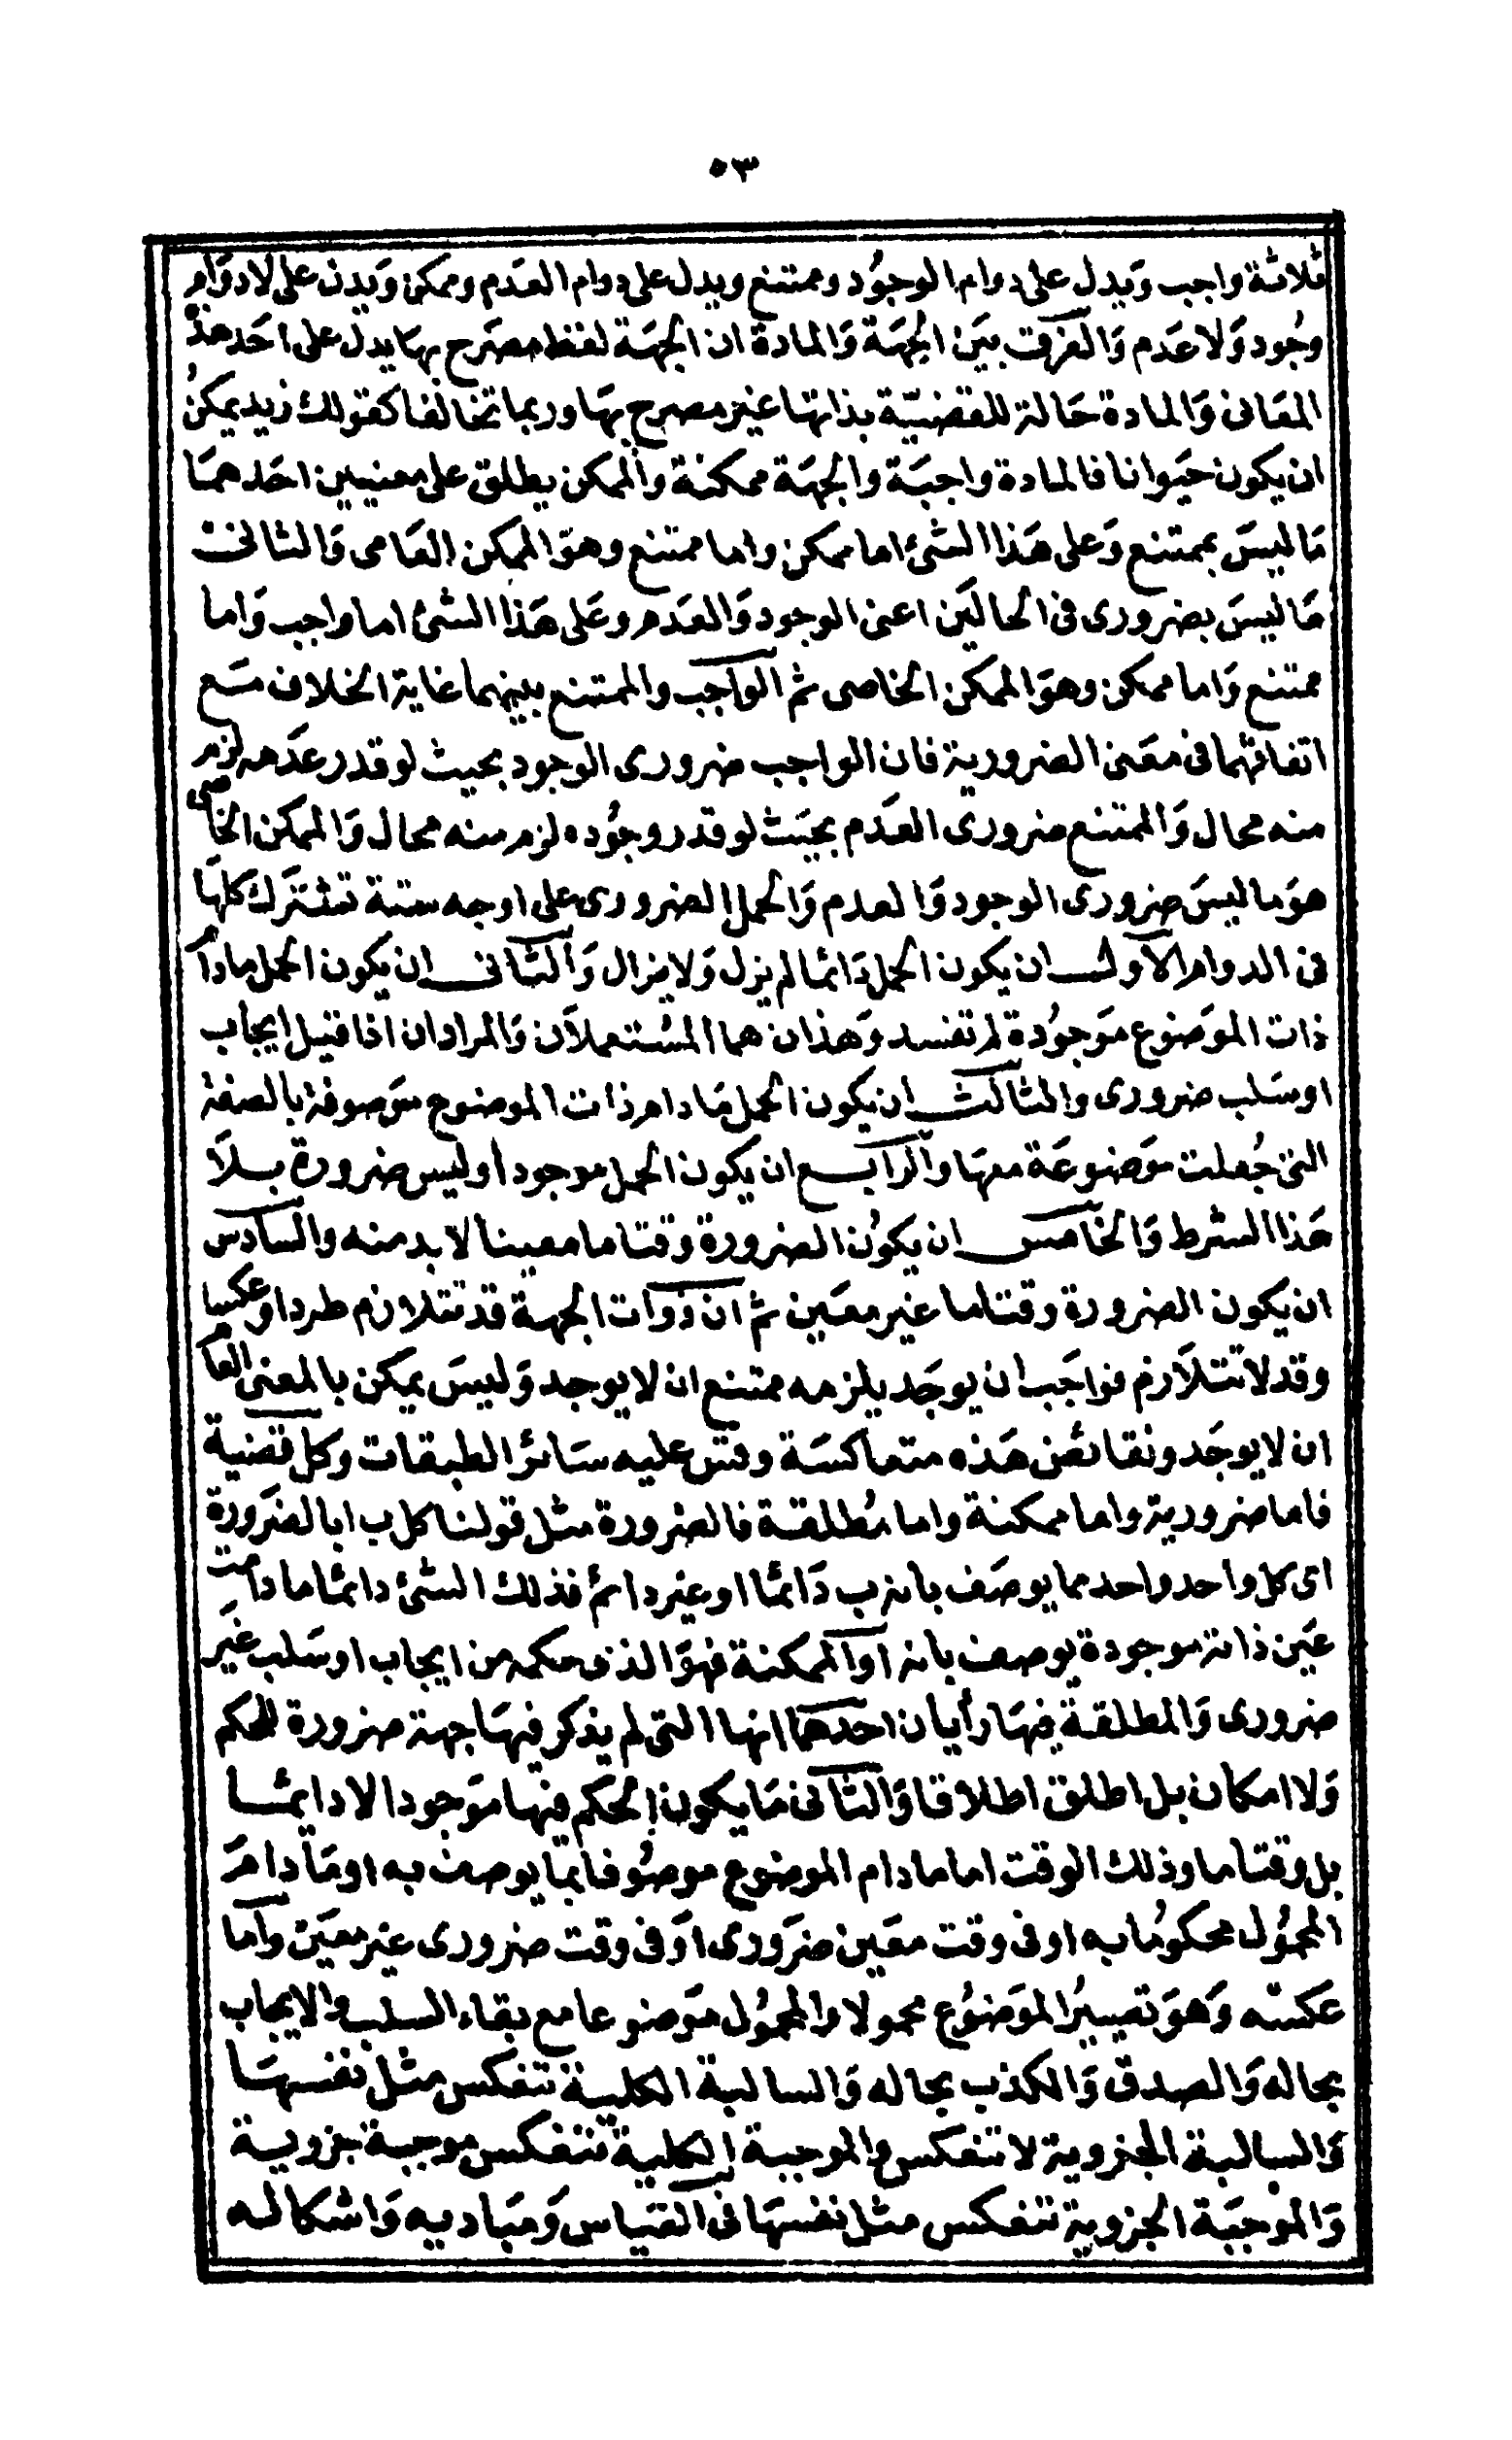 ٥٣
ثلاثة واجب ويدل على دوام الوجود وممتنع ويدل على دوام العدم وممكن ويدل على لا دوام
وجود ولا عدم والفرق بين الجهة والمادة ان الجهة لفظ مصرح بها يدل على احد هذه
المعانى والمادة حالة للقضية بذاتها غير مصرح بها وربما تخالفا كقولك زيد يمكن
ان يكون حيوانا فالمادة واجبة والجهة ممكنة والممكن يطلق على معنيين احدهما
ما ليس بممتنع وعلى هذا الشئ اما ممكن واما ممتنع وهو الممكن العامى والثانى
ما ليس بضرورى فى الحالين اعنى الوجود والعدم وعلى هذا الشئ اما واجب واما
ممتنع واما ممكن وهو الممكن الخاصى ثم الواجب والممتنع بينهما غاية الخلاف مع
اتفاقهما فى معنى الضرورية فان الواجب ضرورى الوجود بحيث لو قدر عدمه لزم
منه محال والممتنع ضرورى العدم بحيث لو قدر وجوده لزم منه محال والممكن الخاصى
هو ما ليس ضرورى الوجود والعدم والحمل الضرورى على اوجه ستة تشترك كلها
فى الدوام الاول ان يكون الحمل دائما لم يزل ولا يزال والثانى ان يكون الحمل مادام
ذات الموضوع موجودة لم تفسد وهذان هما المستعملان والمراد ان اذا قيل ايجاب
او سلب ضرورى والثالث ان يكون الحمل مادام ذات الموضوع موصوفة بالصفة
التى جعلت موضوعة معها والرابع ان يكون الحمل موجودا وليس ضرورة بلا
هذا الشرط والخامس ان يكون الضرورة وقتا ما معينا لا بد منه والسادس
ان يكون الضرورة وقتا ما غير معين ثم ان ذوات الجهة قد تتلازم طردا وعكسا
وقد لا تتلازم فواجب ان يوجد يلزمه ممتنع ان لا يوجد وليس يمكن بالمعنى العام
ان لا يوجد ونقائض هذه متعاكسة وقس عليه سائر الطبقات وكل قضية
فاما ضرورية واما ممكنة واما مطلقة فالضرورة مثل قولنا كل ب ا بالضرورة
اى كل واحد واحد مما يوصف بانه ب دائما او غير دائم فذلك الشئ دائما ما دامت
عين ذاته موجودة يوصف بانه ا والممكنة فهو الذى حكمه من ايجاب او سلب غير
ضرورى والمطلقة فيها رأيان احدهما انها التى لم يذكر فيها جهة ضرورة للحكم
ولا امكان بل اطلق اطلاقا والثانى ما يكون الحكم فيها موجودا لا دايما
بل وقتا ما وذلك الوقت اما ما دام الموضوع موصوفا بما يوصف به او ما دام
المحمول محكوما به او فى وقت معين ضرورى او فى وقت ضرورى غير معين واما
عكسه وهو تصيير الموضوع محمولا والمحمول موضوعا مع بقاء السلب والايجاب
بحاله والصدق والكذب بحاله والسالبة الكلية تنعكس مثل نفسها
والسالبة الجزوية لا تنعكس والموجبة الكلية تنعكس موجبة جزوية
والموجبة الجزوية تنعكس مثل نفسها فى القياس ومباديه واشكاله